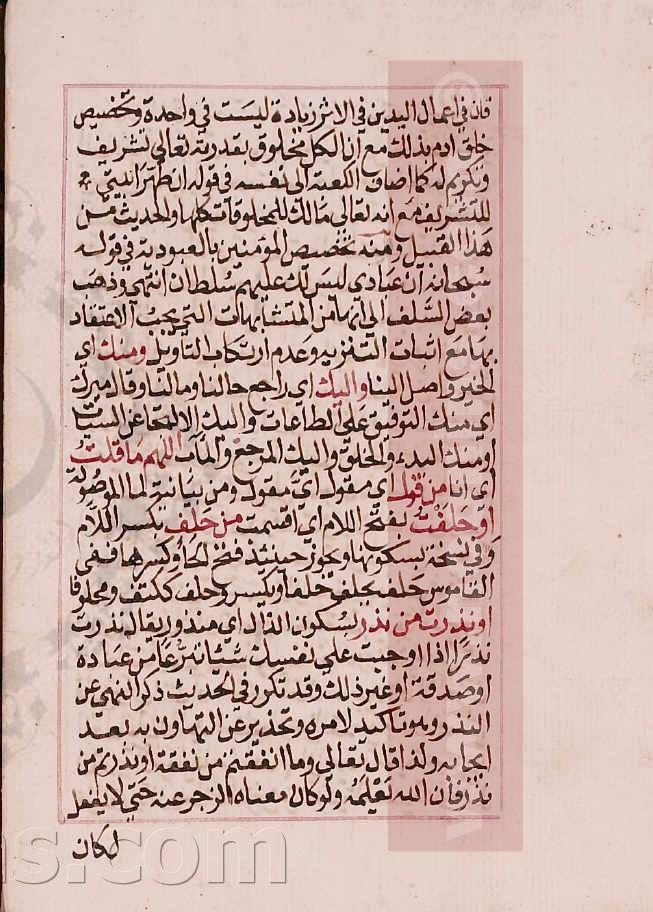 فان في اعمال اليدين في الاثر زيادة ليست في واحدة وتخصيص
خلق ادم بذلك مع ان الكل مخلوق بقدرته تعالى تشريف
وتكريم له كما اضاف الكعبة الى نفسه في قوله ان طهرا بيتي
للتشريف مع انه تعالى مالك للمخلوقات كلها والحديث من
هذا القبيل ومنه تخصيص المؤمنين بالعبودية في قوله
سبحانه ان عبادي ليس لك عليهم سلطان انتهى وذهب
بعض السلف الى انها من المتشابهات التي يجب الاعتقاد
بها مع اثبات التنزيه وعدم ارتكاب التاويل ومنك اي
الخير واصل الينا واليك اي راجع حالنا ومالنا وقال ميرك
اي منك التوفيق على الطاعات واليك الالتجا عن السيات
او منك البدء والخلق واليك المرجع والمآب اللهم ما قلت
اي انا من قول اي مقول اي مقول ومن بيانية لما الموصولة
او حلفت بفتح اللام اي اقسمت من حلف بكسر اللام
وفي نسخة بسكونها ويجوز حينئذ فتح الحا وكسرها ففي
القاموس حلف يحلف حلفا ويكسر وحلف ككتف ومحلوفا
او نذرت من نذر بسكون الذال اي منذور يقال نذرت
نذرا اذا اوجبت على نفسك شيئا تبرعا من عبادة
او صدقة او غير ذلك وقد تكرر في الحديث ذكر النهي عن
النذر وهو تاكيد لامره وتحذير عن التهاون به بعد
ايجابه ولذا قال تعالى وما انفقتم من نفقة او نذرتم من
نذر فان الله يعلمه ولو كان معناه الزجر عنه حتى لا يفعل
لكان
s.com